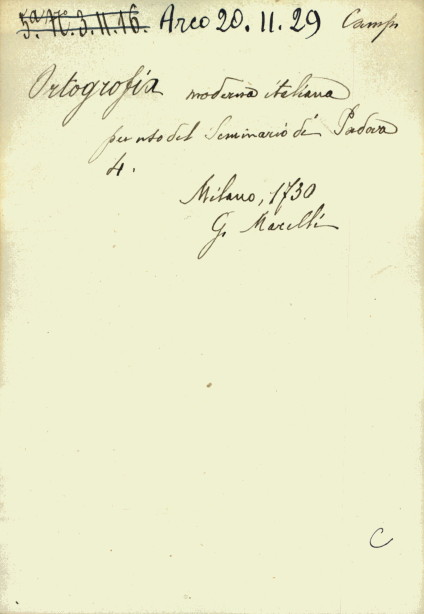 5ª. N. 3. 11. 16. Arco 20. 11. 29 Camp
Ortografia moderna italiana
per uso del Seminario di Padova
4.
Milano, 1730
G. Marelli
C